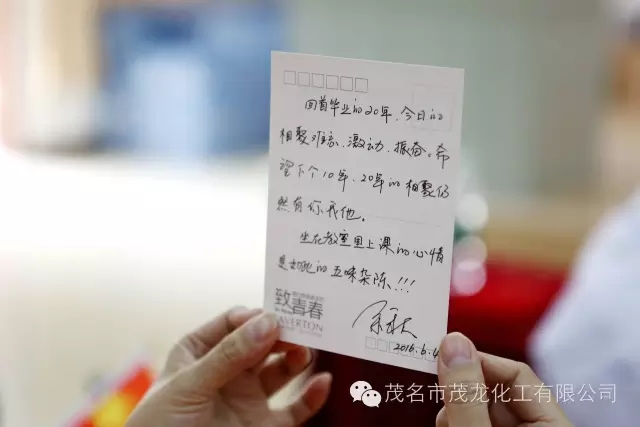 回首毕业的20年,今日的
相聚难忘、激动、振奋。希
望下个10年、20年的相聚仍
然有你我他。
坐在教室里上课的心情
是如此的五味杂陈!!!
致青春
AVERTON
2016.6.4
茂名市茂龙化工有限公司